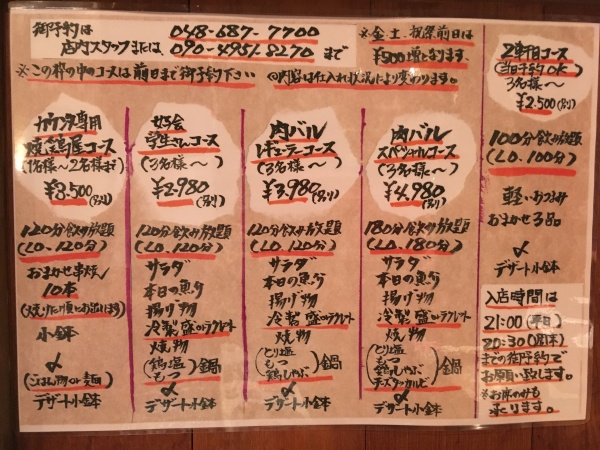 御予約は 048-687-7700
店内スタッフまたは 090-4951-8270 まで
※金土、祝祭前日は
¥500増になります。
※この枠の中のコースは前日まで御予約下さい
◎内容は仕入れ状況により変わります。
カウンター専用
焼鶏屋コース
(1名様〜2名様まで)
¥3.500
120分飲み放題
(L.O,120分)
おまかせ串焼
10本
小鉢
〆
(ごはん物or麺)
デザート小鉢
女子会
学生さんコース
(3名様〜)
¥2.980
120分飲み放題
(L.O,120分)
サラダ
本日の魚
揚げ物
冷製盛orラクレット
焼物
(鶏塩
もつ)鍋
〆
デザート小鉢
肉バル
レギュラーコース
(3名様〜)
¥3.980
120分飲み放題
(L.O,120分)
サラダ
本日の魚
揚げ物
冷製盛orラクレット
焼物
(とり塩
もつ
鶏しゃぶ)鍋
〆
デザート小鉢
肉バル
スペシャルコース
(3名様〜)
¥4.980
180分飲み放題
(L.O,180分)
サラダ
本日の魚
揚げ物
冷製盛orラクレット
焼物
(とり塩
もつ
鶏しゃぶ
チーズタッカルビ)鍋
〆
デザート小鉢
2軒目コース
(当日予約OK)
3名様〜
¥2.500
100分飲み放題
(L.O.100分)
軽いおつまみ
おまかせ3品
〆
デザート小鉢
入店時間は
21:00(平日)
20:30(週末)
までの御予約で
お願い致します。
※お席のみも
承ります。